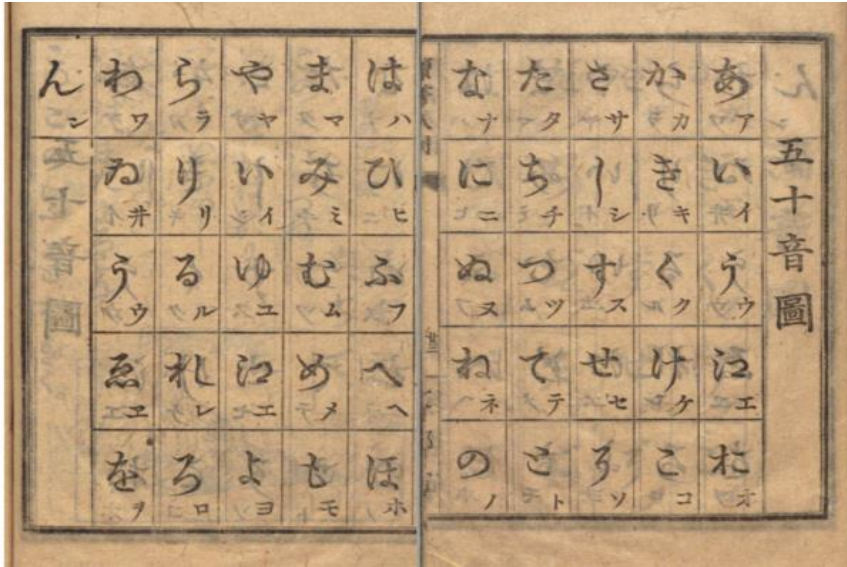 五十音圖
あア いイ うウ 江エ おオ
かカ きキ くク けケ こコ
さサ しシ すス せセ そソ
たタ ちチ つツ てテ とト
なナ にニ ぬヌ ねネ のノ
はハ ひヒ ふフ へヘ ほホ
まマ みミ むム めメ もモ
やヤ いイ ゆユ 江エ よヨ
らラ りリ るル れレ ろロ
わワ ゐヰ うウ ゑヱ をヲ
んン